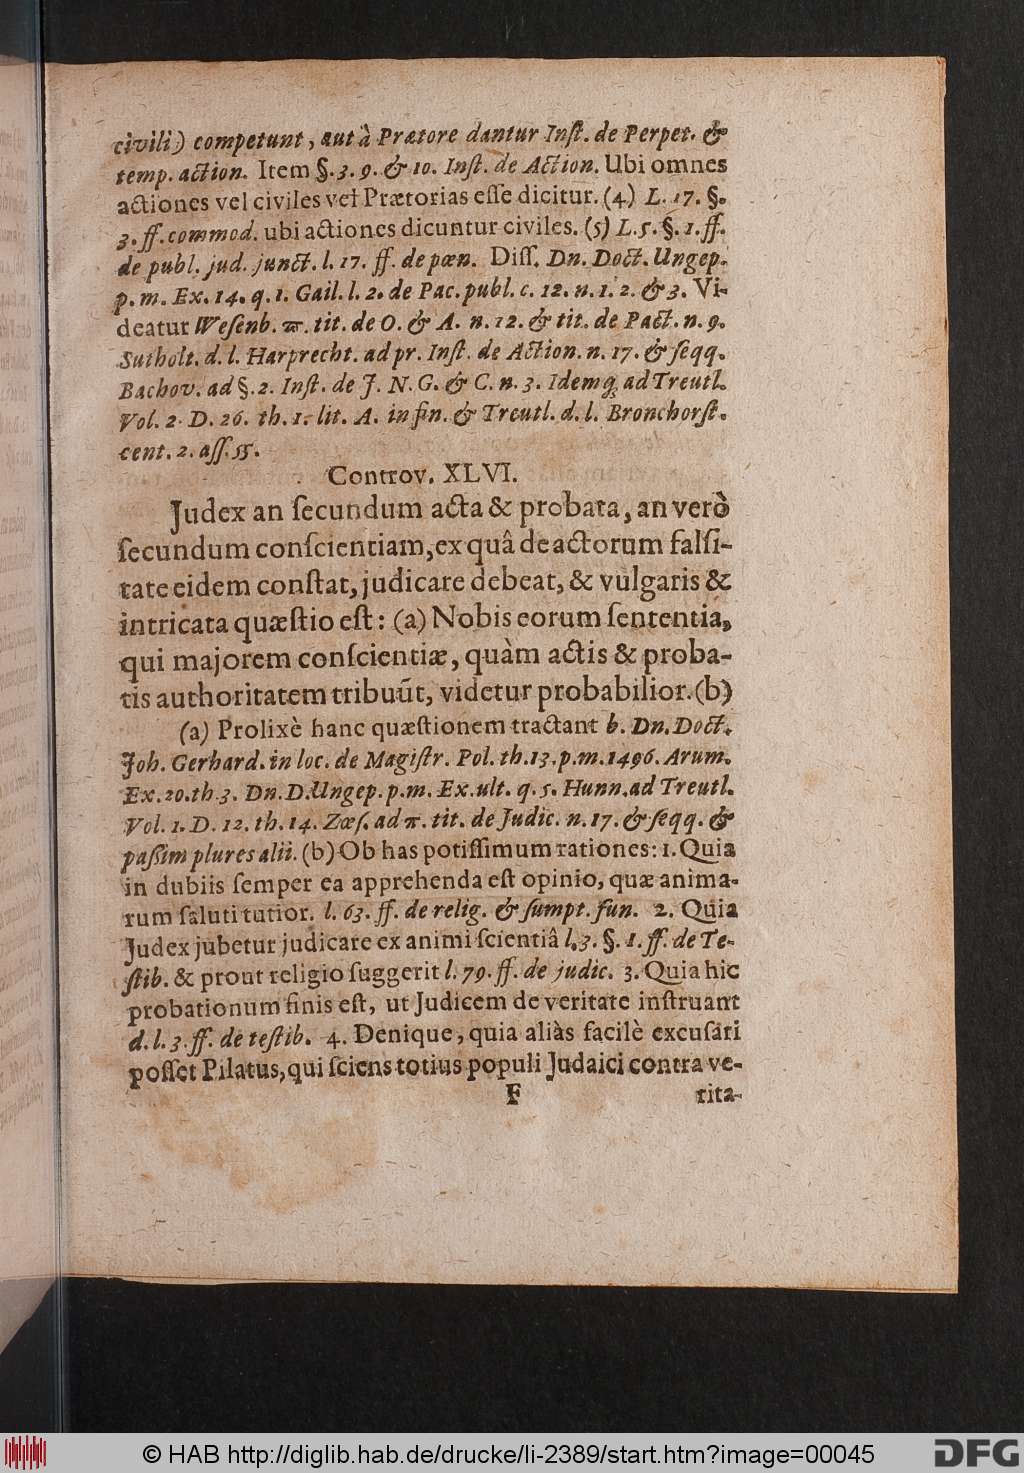 civili) competunt, aut à Prætore dantur Inſt. de Perpet. &
temp. action. Item §. 3. 9. & 10. Inſt. de Action. Ubi omnes
actiones vel civiles vel Prætorias eſſe dicitur. (4) L. 17. §.
3. ff. commod. ubi actiones dicuntur civiles. (5) L. 5. §. 1. ff.
de publ. jud. junct. l. 17. ff. de pœn. Diſſ. Dn. Doct. Ungep.
p. m. Ex. 14. q. 1. Gail. l. 2. de Pac. publ. c. 12. n. 1. 2. & 3. Vi-
deatur Weſenb. π. tit. de O. & A. n. 12. & tit. de Pact. n. 9.
Sutholt. d. l. Harprecht. ad pr. Inſt. de Action. n. 17. & ſeqq.
Bachov. ad §. 2. Inſt. de J. N. G. & C. n. 3. Idemq; ad Treutl.
Vol. 2. D. 26. th. 1. lit. A. in fin. & Treutl. d. l. Bronchorſt.
cent. 2. aſſ. 55.
Controv. XLVI.
Judex an ſecundum acta & probata, an verò
ſecundum conſcientiam, ex quâ de actorum falſi-
tate eidem conſtat, judicare debeat, & vulgaris &
intricata quæſtio eſt: (a) Nobis eorum ſententia,
qui majorem conſcientiæ, quàm actis & proba-
tis authoritatem tribuūt, videtur probabilior. (b)
(a) Prolixè hanc quæſtionem tractant b. Dn. Doct.
Joh. Gerhard. in loc. de Magiſtr. Pol. th. 13. p. m. 1496. Arum.
Ex. 20. th. 3. Dn. D. Ungep. p. m. Ex. ult. q. 5. Hunn. ad Treutl.
Vol. 1. D. 12. th. 14. Zœſ. ad π. tit. de Judic. n. 17. & ſeqq. &
paſſim plures alii. (b) Ob has potiſſimum rationes: 1. Quia
in dubiis ſemper ea apprehenda eſt opinio, quæ anima-
rum ſaluti tutior. l. 63. ff. de relig. & ſumpt. fun. 2. Quia
Judex jubetur judicare ex animi ſcientiâ l. 3. §. 1. ff. de Te-
ſtib. & prout religio ſuggerit l. 79. ff. de judic. 3. Quia hic
probationum finis eſt, ut Judicem de veritate inſtruant
d. l. 3. ff. de teſtib. 4. Denique, quia aliàs facilè excuſari
poſſet Pilatus, qui ſciens totius populi Judaici contra ve-
F rita-
© HAB http://diglib.hab.de/drucke/li-2389/start.htm?image=00045
DFG